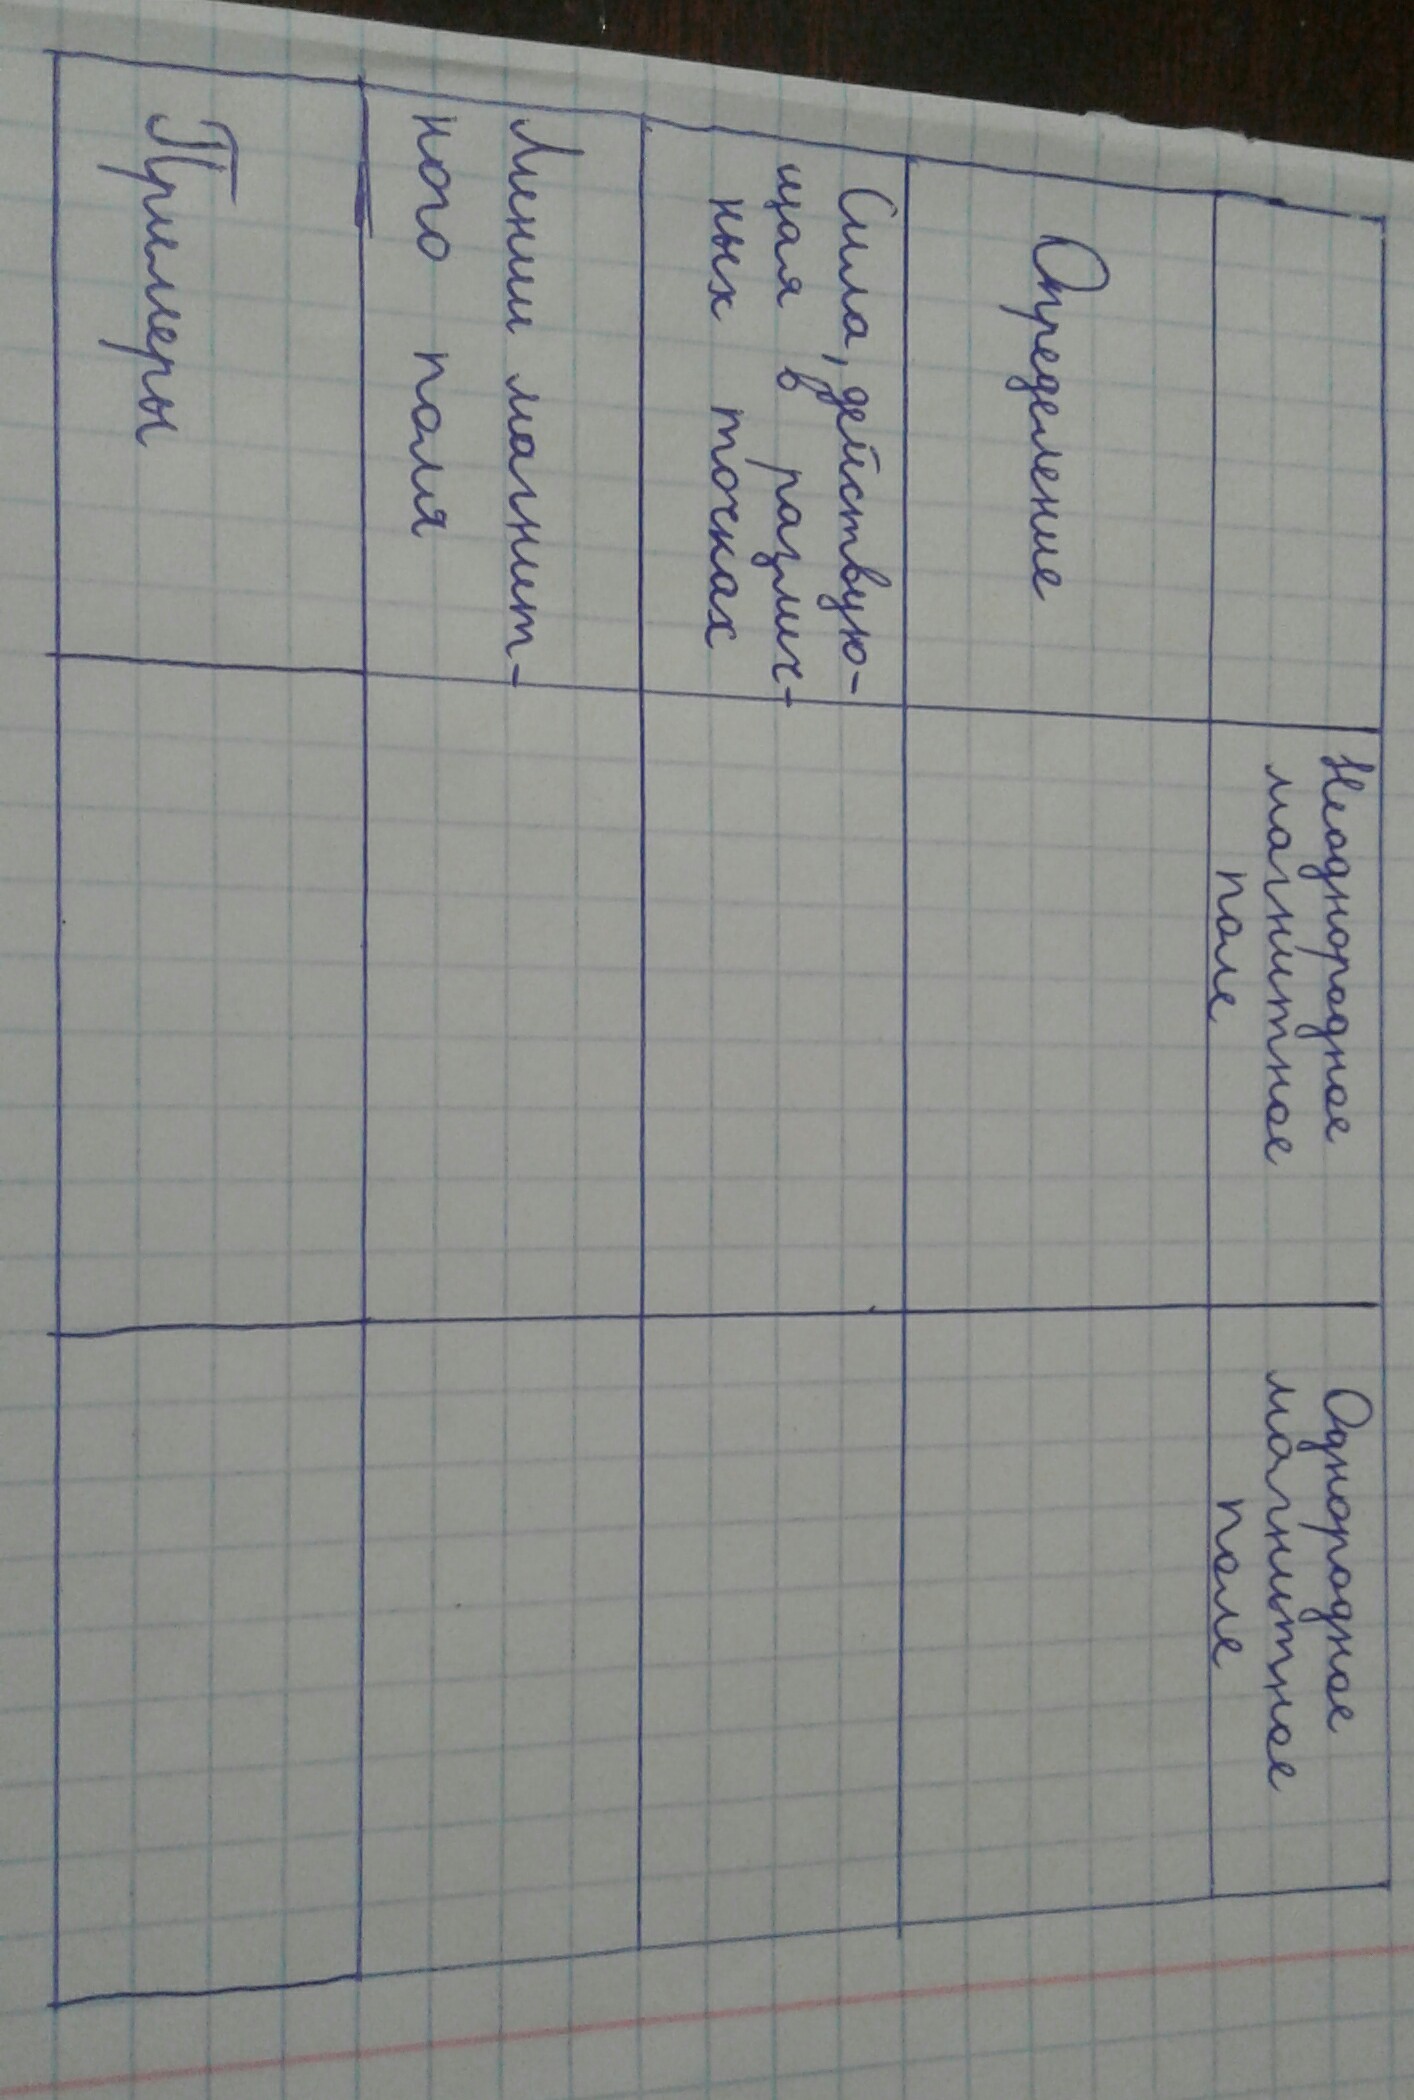 Неоднородное
магнитное
поле
Однородное
магнитное
поле
Определение
Сила, действую-
щая в различ-
ных точках
Линии магнит-
ного поля
Примеры